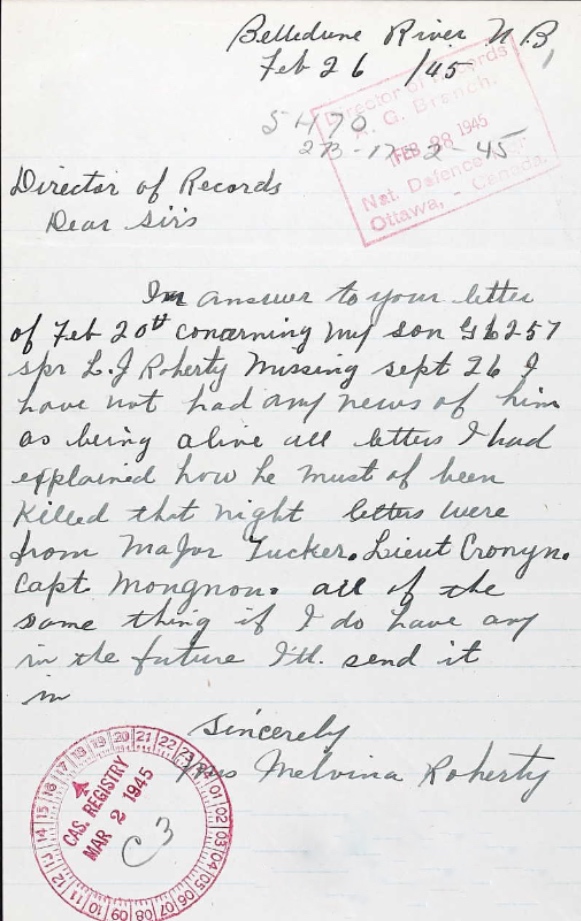 Belledune River N B,
Feb 26 /45
Director of Records
A. G. Branch.
FEB 28 1945
Nat. Defence
Ottawa, - Canada.
5470
273-17-2-45
Director of Records
Dear Sirs
In answer to your letter
of Feb 20th concerning my son G6257
spr L.J Roherty Missing sept 26 I
have not had any news of him
as being alive all letters I had
explained how he must of been
Killed that night letters were
from Major Tucker. Lieut Cronyn.
Capt. Mongnon. all of the
same thing if I do have any
in the future I'll. send it
in
Sincerely
Mrs Melvina Roherty
CAS. REGISTRY
MAR 2 1945
C3
15 16 17 18 19 20 21 22 23 01 02 03 04 05 06 07 08 09 10 11 12 13 14